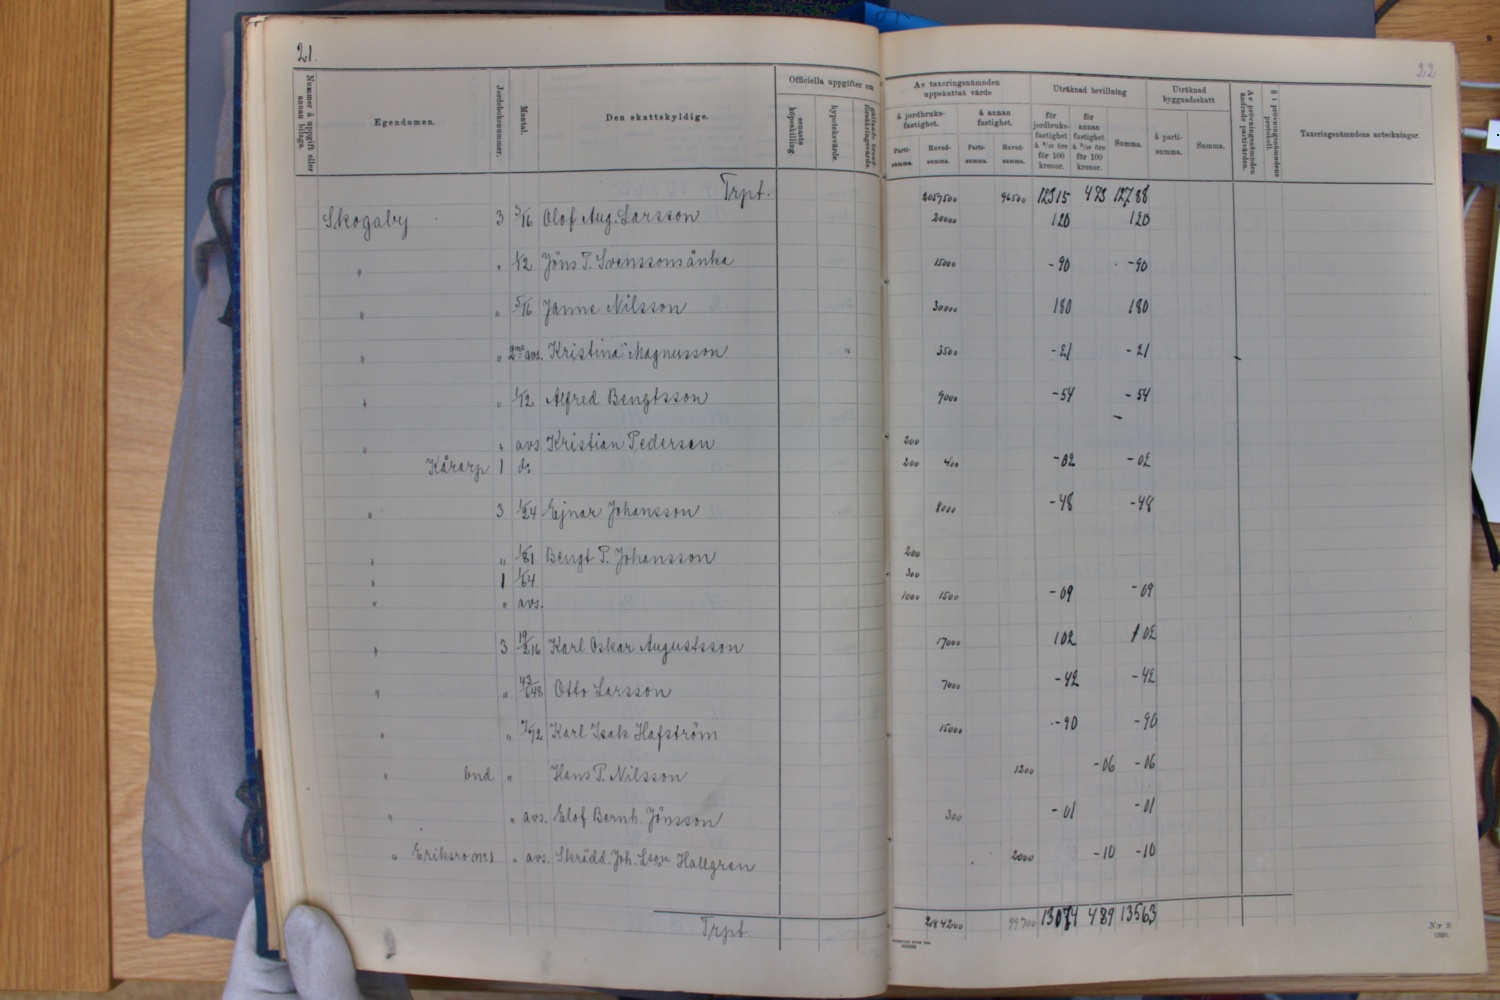 21.
22
Nummer å uppgift eller annan bilaga.
Egendomen.
Jordeboksnummer.
Mantal.
Den skattskyldige.
Officiella uppgifter om
senaste köpeskilling.
hypoteksvärde.
gällande brandförsäkringsvärde.
Av taxeringsnämnden uppskattat värde
å jordbruksfastighet.
å annan fastighet.
Partisumma.
Huvudsumma.
Partisumma.
Huvudsumma.
Uträknad bevillning
för jordbruksfastighet à 6/10 öre för 100 kronor.
för annan fastighet à 5/10 öre för 100 kronor.
Summa.
Uträknad byggnadsskatt
à partisumma.
Summa.
Av prövningsnämnden ändrade partivärden.
§ i prövningsnämndens protokoll.
Taxeringsnämndens anteckningar.
Trpt. 2059500 96500 12315 473 12788
Skogaby 3 3/16 Olof Aug. Larsson 20000 120 120
" " 1/12 Jöns P. Svenssons änka 15000 -90 -90
" " 5/16 Janne Nilsson 30000 180 180
" " 2ne avs. Kristina Magnusson 3500 -21 -21
" " 1/12 Alfred Bengtsson 9000 -54 -54
" " avs. Kristian Pederson 200
Kårarp 1 do 200 400 -02 -02
" 3 1/24 Ejnar Johansson 8000 -48 -48
" " 1/81 Bengt P. Johansson 200
" 1 1/64 300
" " avs. 1000 1500 -09 -09
" 3 19/216 Karl Oskar Augustsson 17000 102 102
" " 43/648 Otto Larsson 7000 -42 -42
" " 7/72 Karl Isak Hafström 15000 -90 -90
" " Hans P. Nilsson 1200 -06 -06
" " avs. Elof Bernh. Jönsson 300 -01 -01
" Eriksro No 1 " avs. Skrädd. Joh. Leon. Hallgren 2000 -10 -10
Trpt 2184200 99700 13074 489 13563
N:r 9.
1920.